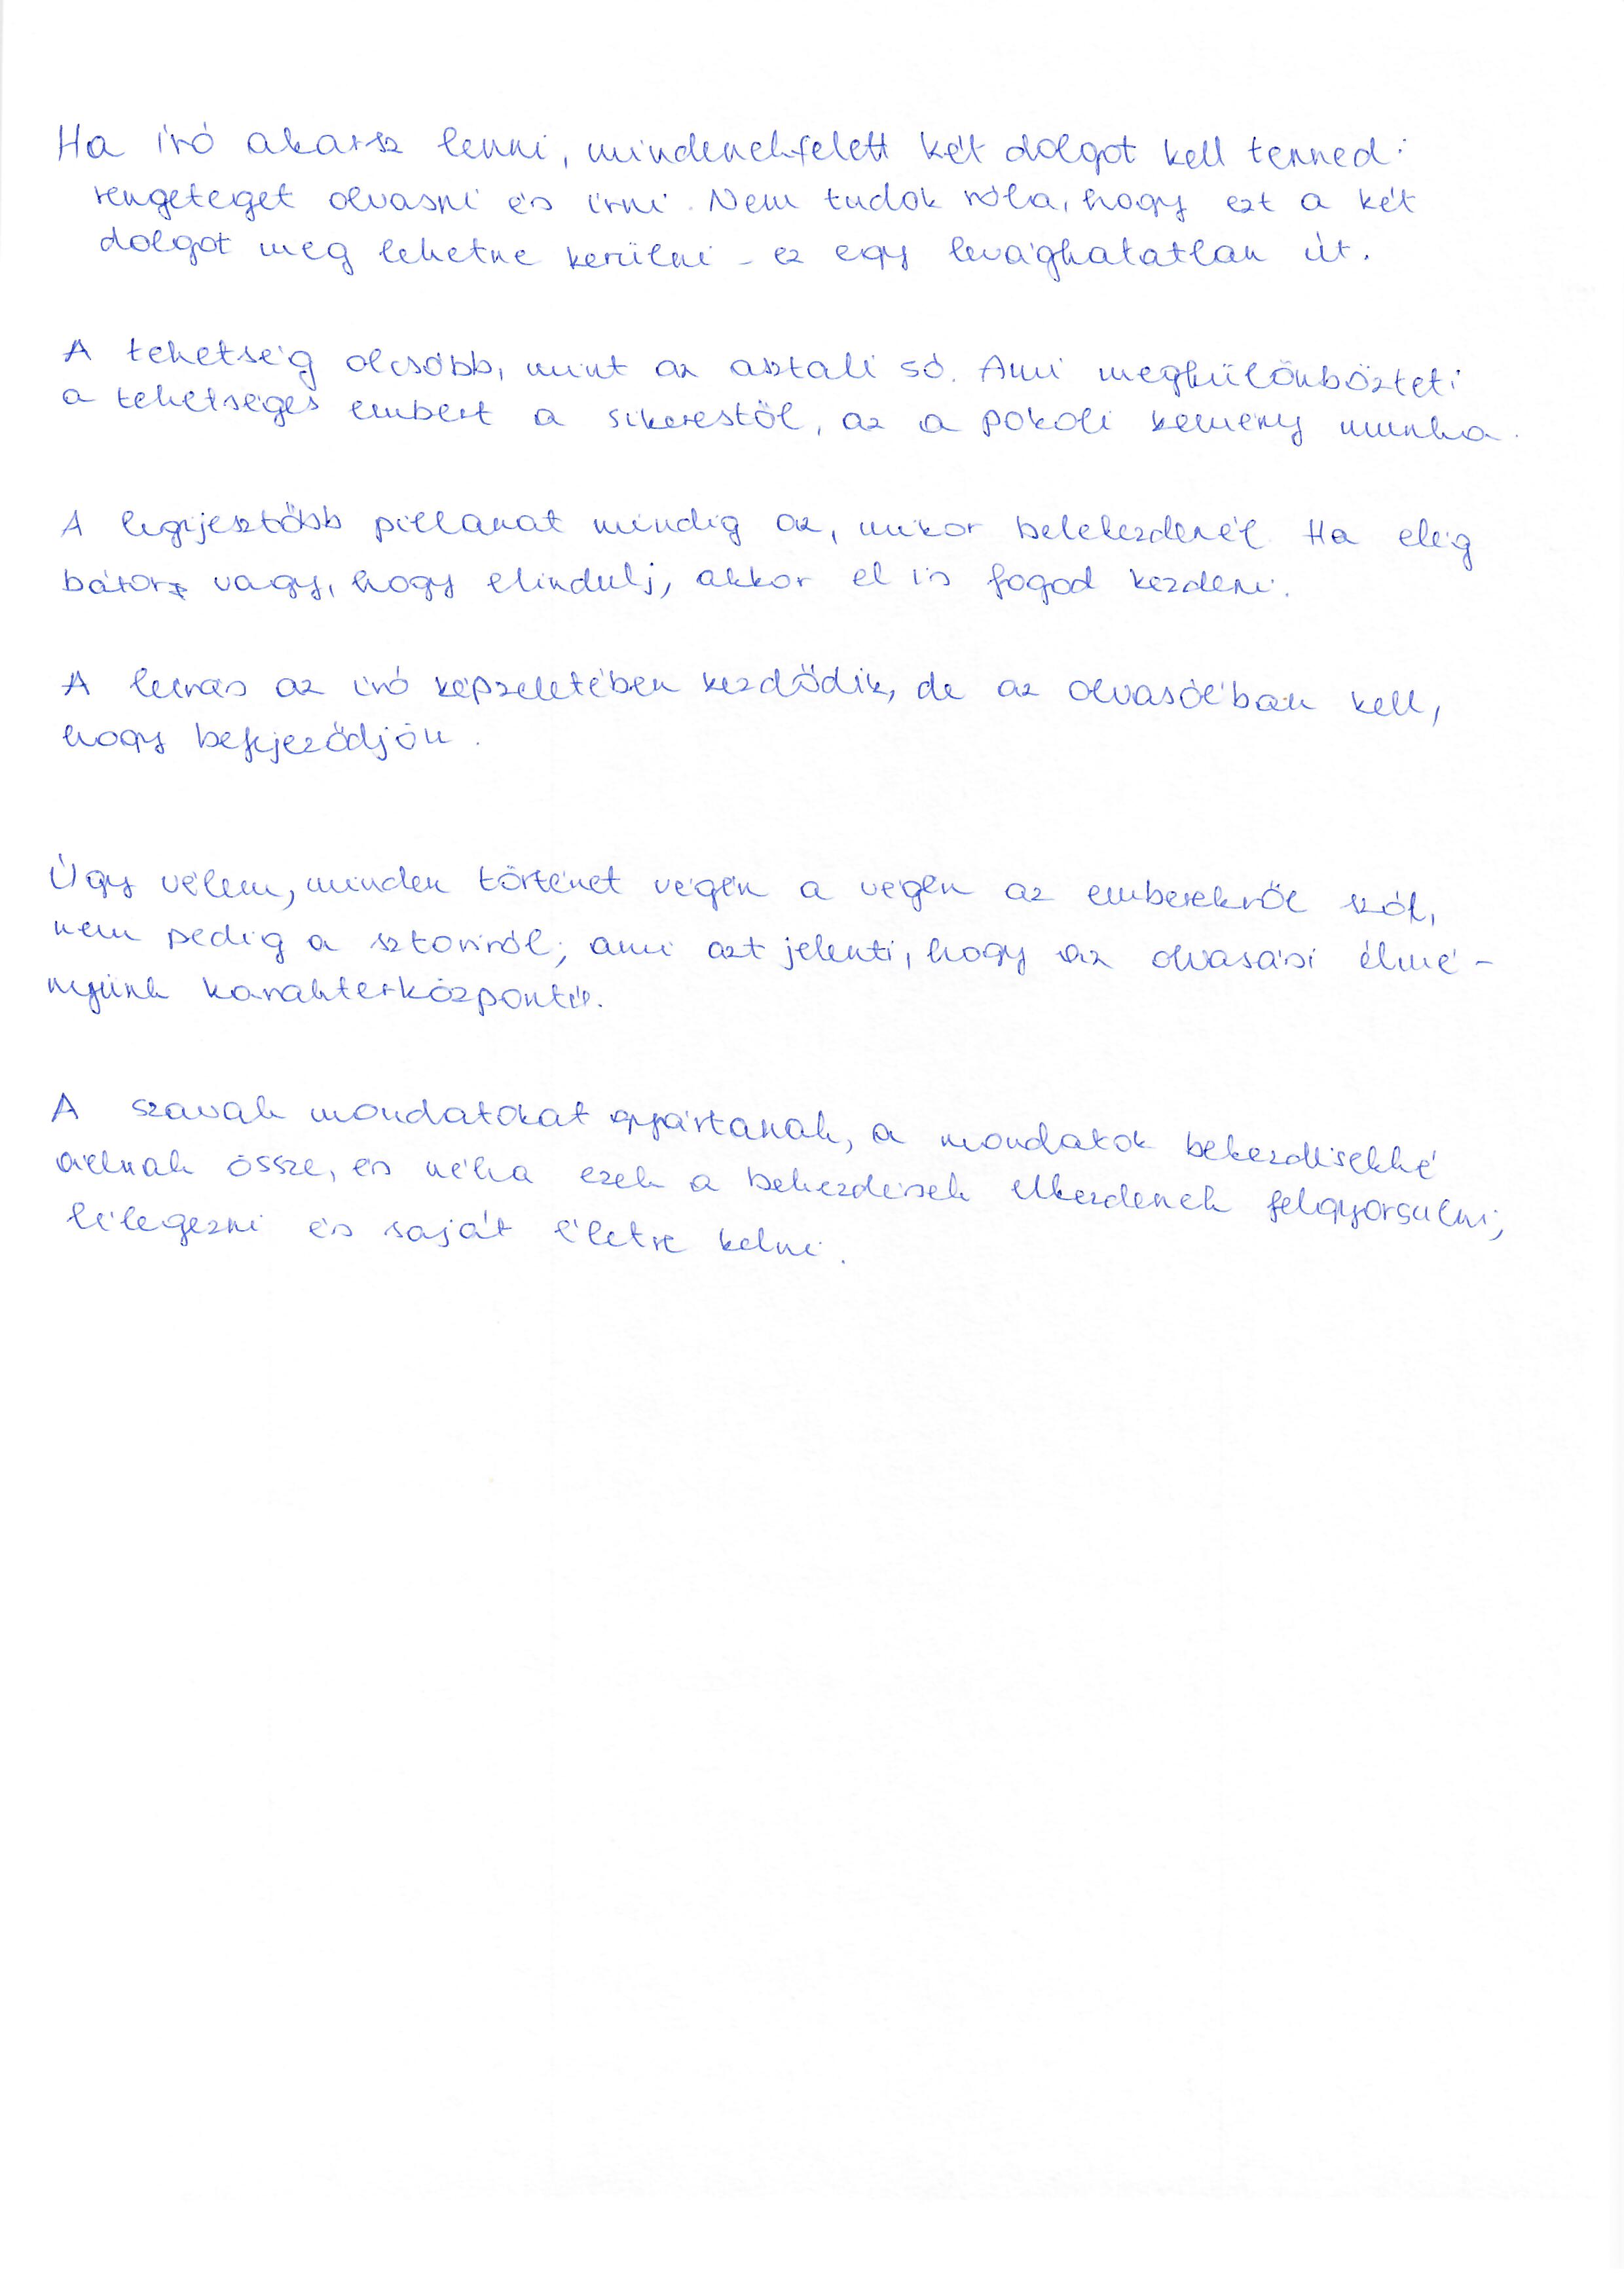 Ha író akarsz lenni, mindenekfelett két dolgot kell tenned:
rengeteget olvasni és írni. Nem tudok róla, hogy ezt a két
dolgot meg lehetne kerülni - ez egy levághatatlan út.
A tehetség olcsóbb, mint az asztali só. Ami megkülönbözteti
a tehetséges embert a sikerestől, az a pokoli kemény munka.
A legijesztőbb pillanat mindig az, mikor belekezdenél. Ha elég
bátor vagy, hogy elindulj, akkor el is fogod kezdeni.
A leírás az író képzeletében kezdődik, de az olvasóéban kell,
hogy befejeződjön.
Úgy vélem, minden történet végén a végén az emberekről szól,
nem pedig a sztoriról; ami azt jelenti, hogy az olvasási élmé-
nyünk karakterközpontú.
A szavak mondatokat gyártanak, a mondatok bekezdésekké
állnak össze, és néha ezek a bekezdések elkezdenek felgyorsulni,
lélegezni és saját életre kelni.